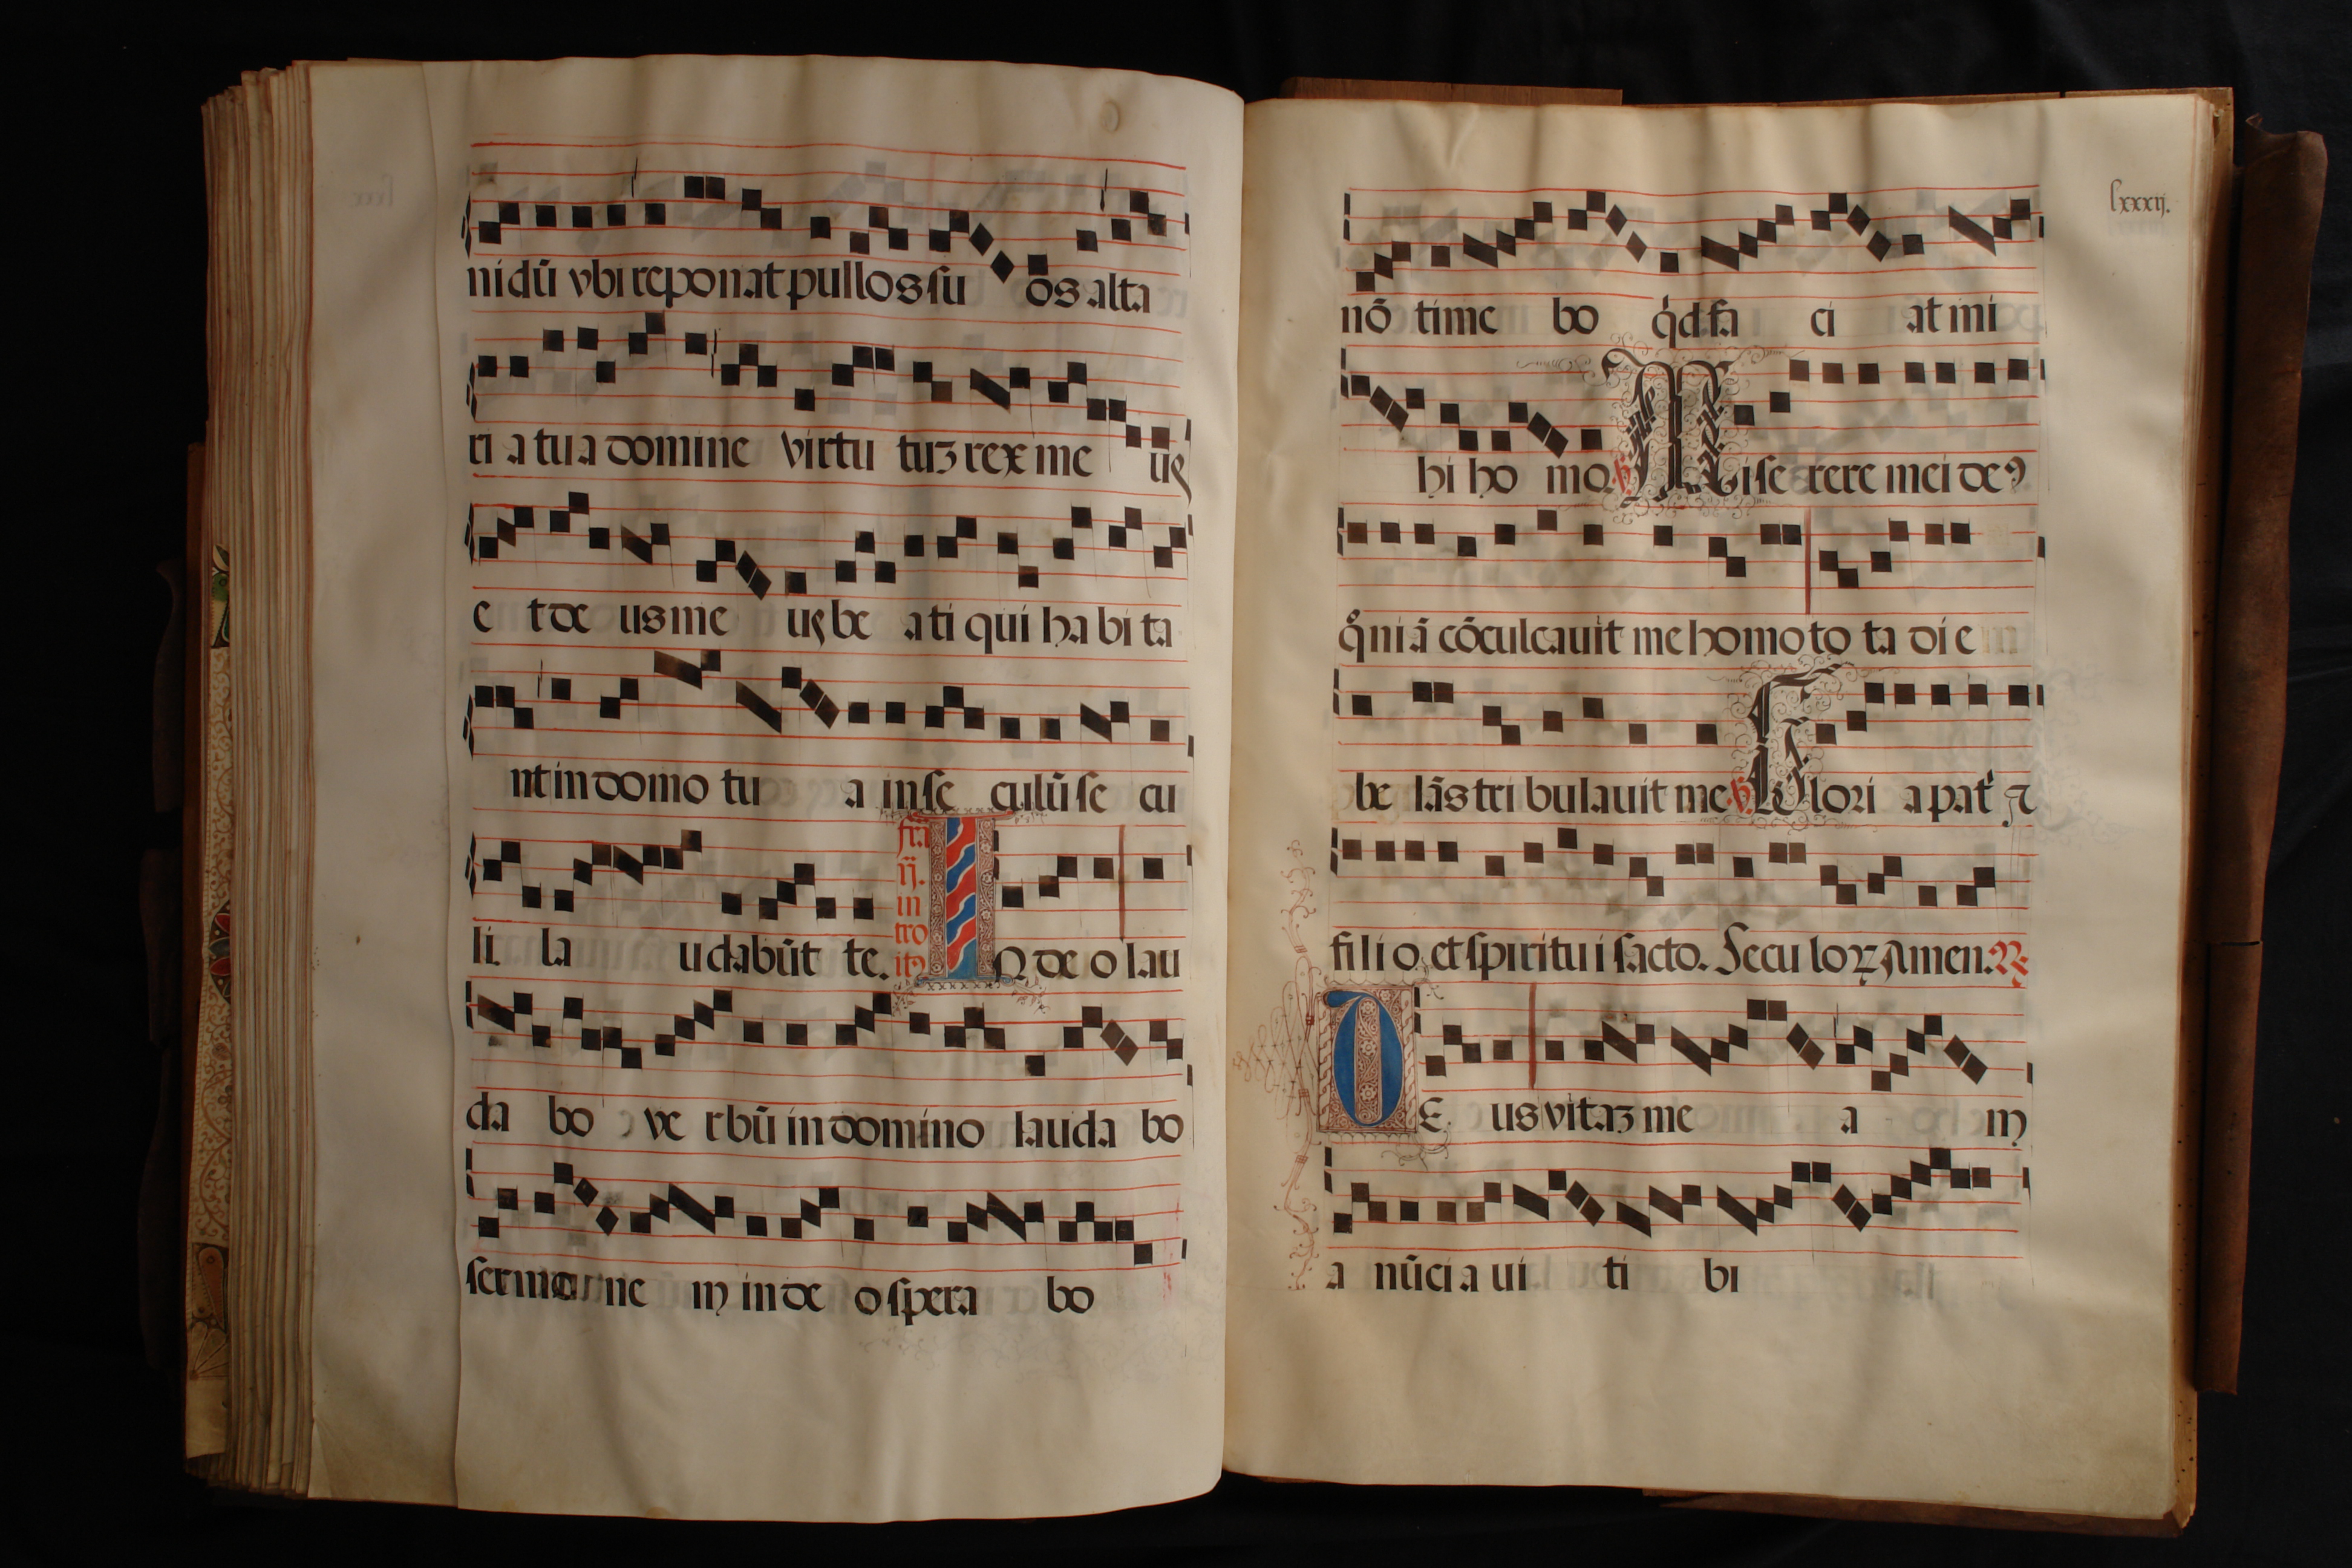 nidū vbi reponat pullos su os alta
ri a tua domine virtu tuꝫ rex me us
e t de us me us be ati qui habita
nt in domo tu a in se culū se cu
li la udabūt te.
fr̄a
ij.
in
tro
itꝰ
IN de o lau
da bo ve rbū in domino lauda bo
sermo ne m in de o spera bo
lxxxij.
nō time bo qd fa ci at mi
hi ho mo. Mise rere mei deꝰ
qūiā cōculcauit me homo to ta di e
be lās tri bulauit me Glori a patⁱ ⁊
fili o. et spiritui sācto. Seculoꝝ Amen.
DE us vitaꝫ me a m
a nūci a ui ti bi